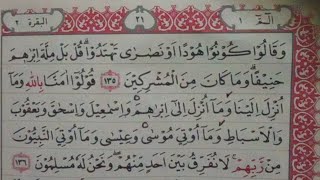 الٓمّٓ ١ ٢١ البقرة ٢
وَقَالُوا كُونُوا هُودًا اَوْ نَصٰرٰى تَهْتَدُوْاۗ قُلْ بَلْ مِلَّةَ اِبْرٰهٖمَ
حَنِيْفًاۗ وَمَا كَانَ مِنَ الْمُشْرِكِيْنَ ١٣٥ قُوْلُوْٓا اٰمَنَّا بِاللّٰهِ وَمَآ
اُنْزِلَ اِلَيْنَا وَمَآ اُنْزِلَ اِلٰٓى اِبْرٰهٖمَ وَاِسْمٰعِيْلَ وَاِسْحٰقَ وَيَعْقُوْبَ
وَالْاَسْبَاطِ وَمَآ اُوْتِيَ مُوْسٰى وَعِيْسٰى وَمَآ اُوْتِيَ النَّبِيُّوْنَ
مِنْ رَّبِّهِمْۚ لَا نُفَرِّقُ بَيْنَ اَحَدٍ مِّنْهُمْۖ وَنَحْنُ لَهٗ مُسْلِمُوْنَ ١٣٦